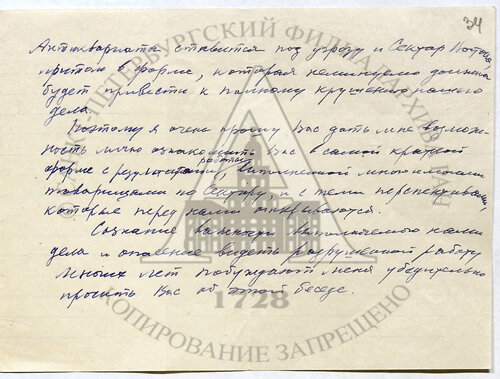 34
Антиквариата ставится под угрозу и Сектор Востока
притом в форме, которая неминуемо должна
будет привести к полному крушению нашего
дела.
Поэтому я очень прошу Вас дать мне возмож-
ность лично ознакомить Вас в самой краткой
форме с результатами работы, выполненной мною и моими
товарищами по Сектору, с теми перспективами,
которые перед нами открываются.
Сознание важности выполняемого нами
дела и опасение видеть разрушенной работу
многих лет побуждают меня убедительно
просить Вас об этой беседе.
САНКТ-ПЕТЕРБУРГСКИЙ ФИЛИАЛ АРХИВА РАН
1728
КОПИРОВАНИЕ ЗАПРЕЩЕНО